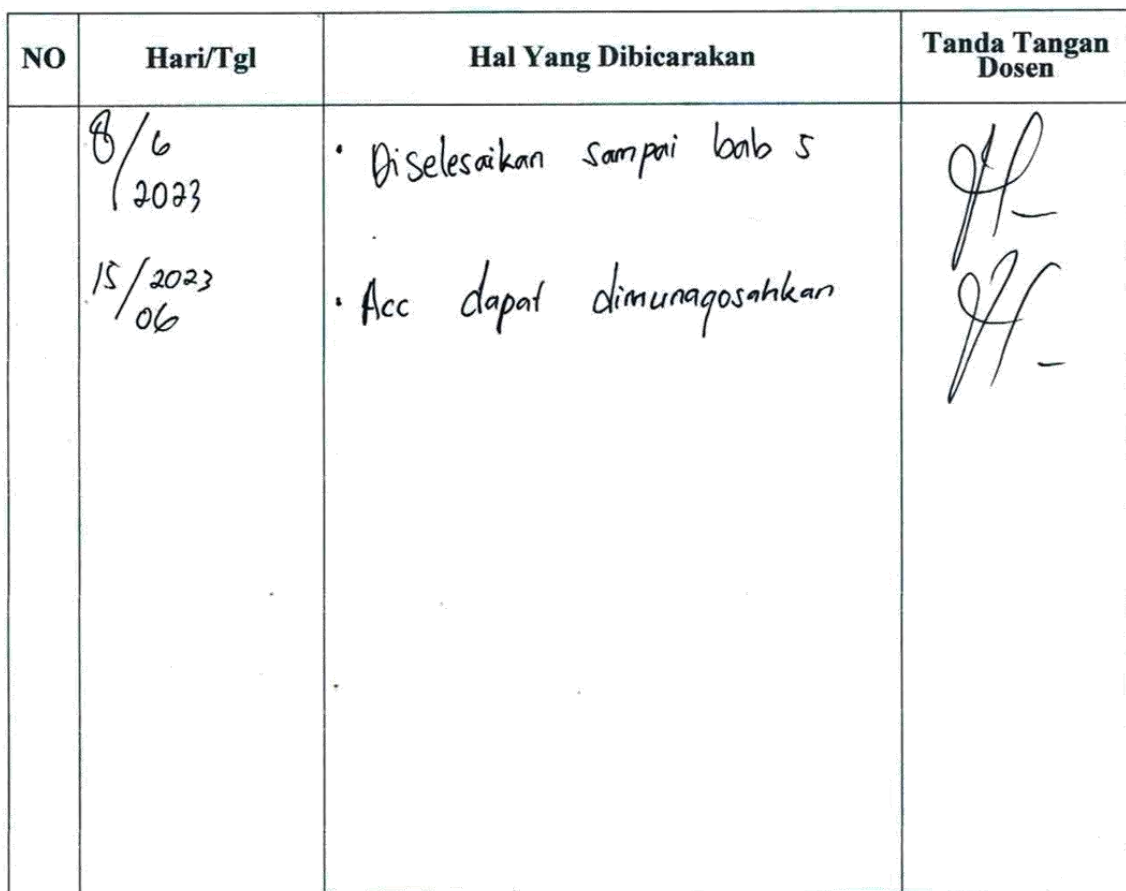 NO Hari/Tgl Hal Yang Dibicarakan Tanda Tangan
Dosen
8/6 · Diselesaikan sampai bab 5
2023
15/2023 · Acc dapat dimunaqosahkan
06